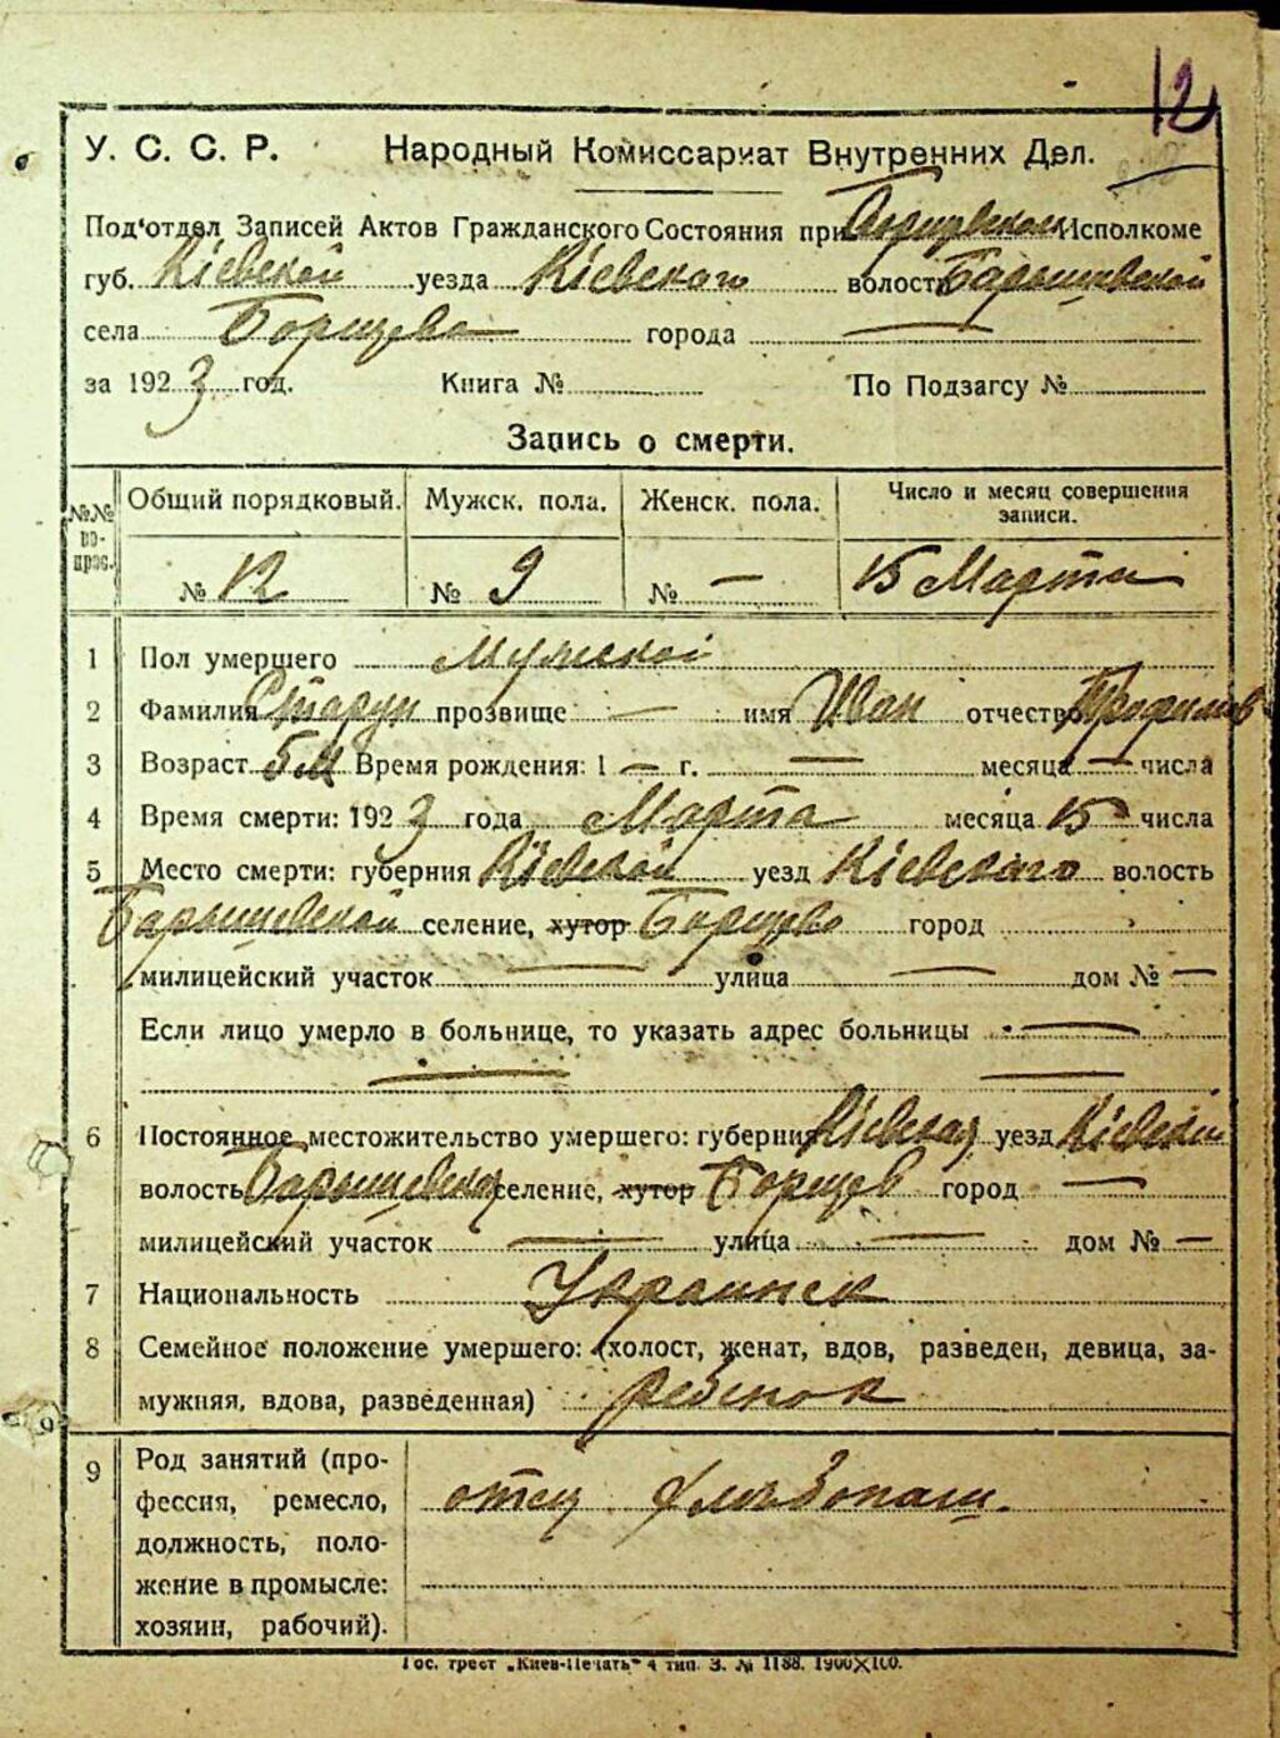 12
У. С. С. Р. Народный Комиссариат Внутренних Дел.
Под'отдел Записей Актов Гражданского Состояния при Исполкоме
губ. Кіевской уезда Кіевского волости Барышевской
села Борщево города —
за 1923 год. Книга № По Подзагсу №
Запись о смерти.
№№ вопрос. Общий порядковый. Мужск. пола. Женск. пола. Число и месяц совершения записи.
№ 12 № 9 № — 15 Марта
1 Пол умершего Мужской
2 Фамилия Старун прозвище — имя Иван отчество Трофимов
3 Возраст 5 м Время рождения: 1 — г. — месяца — числа
4 Время смерти: 1923 года Марта месяца 15 числа
5 Место смерти: губерния Кіевской уезд Кіевского волость
Барышевской селение, хутор Борщево город
милицейский участок — улица — дом № —
Если лицо умерло в больнице, то указать адрес больницы —
— —
6 Постоянное местожительство умершего: губерния Кіевская уезд Кіевский
волость Барышевская селение, хутор Борщев город —
милицейский участок — улица — дом № —
7 Национальность Украинск
8 Семейное положение умершего: (холост, женат, вдов, разведен, девица, за-
мужняя, вдова, разведенная) ребенок
9 Род занятий (про- отец хлѣбопаш.
фессия, ремесло,
должность, поло-
жение в промысле:
хозяин, рабочий).
Гос. трест „Киев-Печать" 4 тип. З. № 1188. 1900×100.